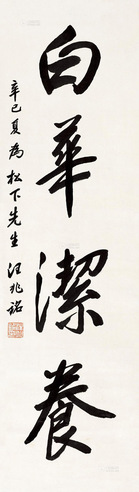 白華潔養
辛巳夏為松下先生 汪兆銘